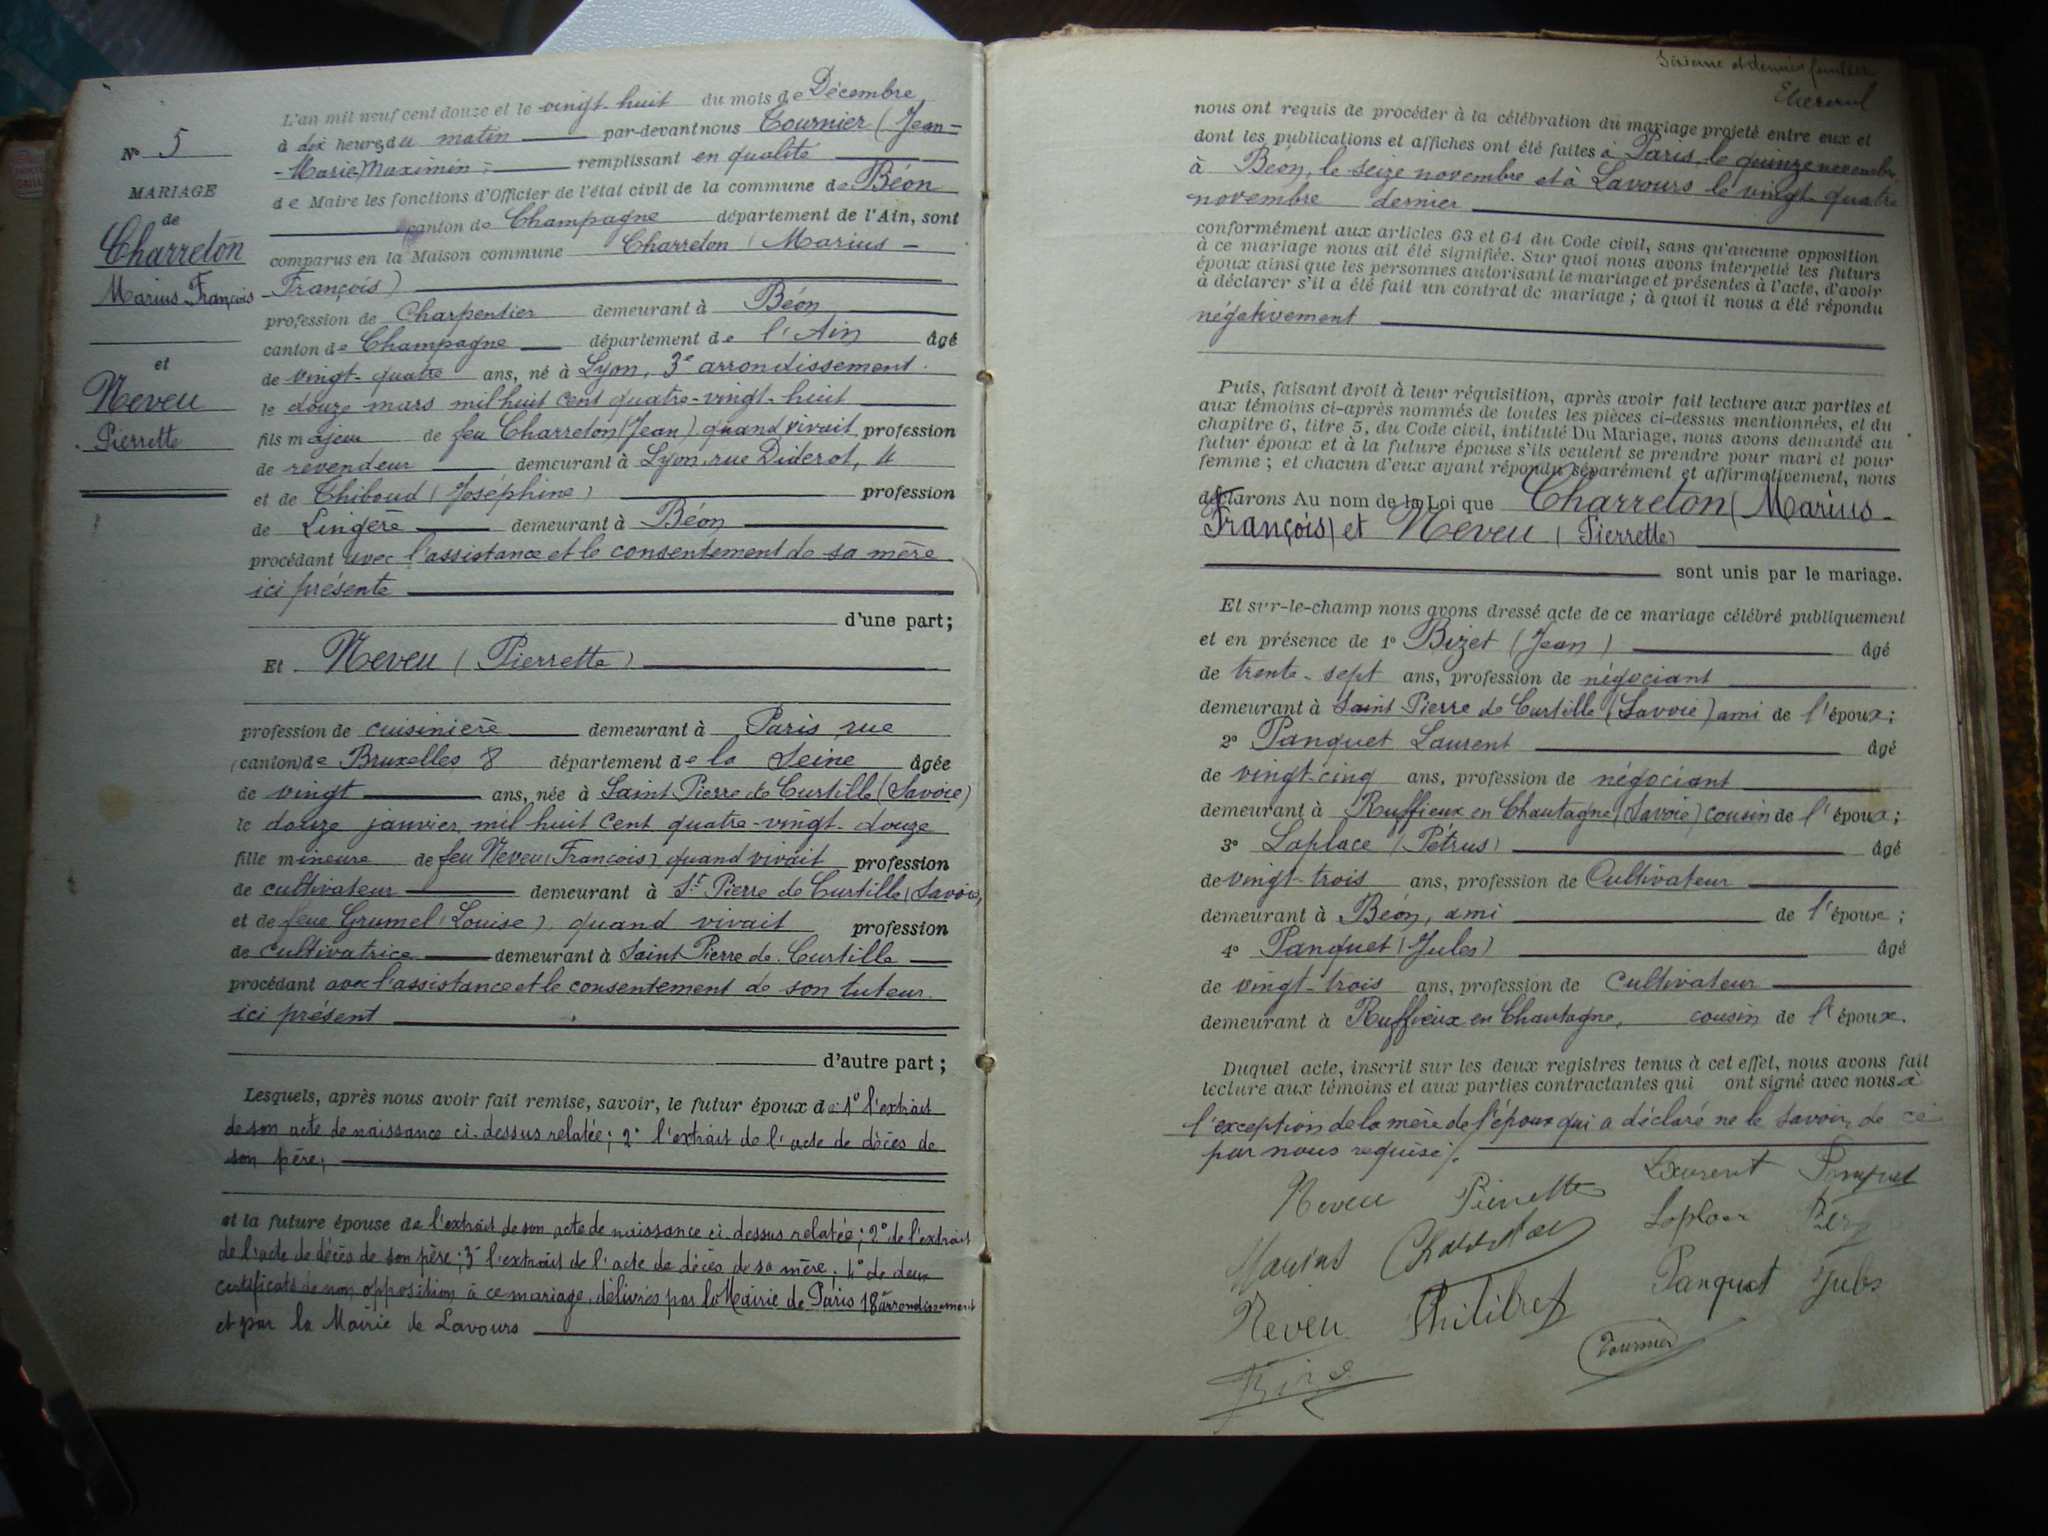 N° 5
MARIAGE
de
Charreton
Marius François
et
Neveu
Pierrette
L'an mil neuf cent douze et le vingt-huit du mois de Décembre
à dix heures du matin par-devant nous Tournier (Jean-
-Marie) Maximin, remplissant en qualité
de Maire les fonctions d'Officier de l'état civil de la commune de Béon
canton de Champagne département de l'Ain, sont
comparus en la Maison commune Charreton (Marius-
François)
profession de Charpentier demeurant à Béon
canton de Champagne département de l'Ain âgé
de vingt-quatre ans, né à Lyon, 3e arrondissement.
le douze mars mil huit cent quatre-vingt-huit
fils majeur de feu Charreton (Jean) quand vivait profession
de revendeur demeurant à Lyon, rue Diderot, 4
et de Thiboud (Joséphine) profession
de Lingère demeurant à Béon
procédant avec l'assistance et le consentement de sa mère
ici présente
d'une part;
Et Neveu (Pierrette)
profession de cuisinière demeurant à Paris rue
(canton) de Bruxelles 8 département de la Seine âgée
de vingt ans, née à Saint Pierre de Curtille (Savoie)
le douze janvier mil huit cent quatre-vingt-douze
fille mineure de feu Neveu (François) quand vivait profession
de cultivateur demeurant à St Pierre de Curtille (Savoie)
et de feue Grumel (Louise), quand vivait profession
de cultivatrice demeurant à Saint Pierre de Curtille
procédant avec l'assistance et le consentement de son tuteur
ici présent
d'autre part;
Lesquels, après nous avoir fait remise, savoir, le futur époux de 1° l'extrait
de son acte de naissance ci-dessus relatée; 2° l'extrait de l'acte de décès de
son père;
et la future épouse de l'extrait de son acte de naissance ci dessus relatée; 2° de l'extrait
de l'acte de décès de son père; 3° l'extrait de l'acte de décès de sa mère; 4° de deux
certificats de non opposition à ce mariage, délivrés par la Mairie de Paris 18e arrondissement
et par la Mairie de Lavours
Sixième et dernier feuillet
nous ont requis de procéder à la célébration du mariage projeté entre eux et
dont les publications et affiches ont été faites à Paris, le quinze novembre,
à Béon, le seize novembre et à Lavours le vingt-quatre
novembre dernier
conformément aux articles 63 et 64 du Code civil, sans qu'aucune opposition
à ce mariage nous ait été signifiée. Sur quoi nous avons interpellé les futurs
époux ainsi que les personnes autorisant le mariage et présentes à l'acte, d'avoir
à déclarer s'il a été fait un contrat de mariage; à quoi il nous a été répondu
négativement
Puis, faisant droit à leur réquisition, après avoir fait lecture aux parties et
aux témoins ci-après nommés de toutes les pièces ci-dessus mentionnées, et du
chapitre 6, titre 5, du Code civil, intitulé Du Mariage, nous avons demandé au
futur époux et à la future épouse s'ils veulent se prendre pour mari et pour
femme; et chacun d'eux ayant répondu séparément et affirmativement, nous
déclarons Au nom de la Loi que Charreton (Marius-
François) et Neveu (Pierrette)
sont unis par le mariage.
Et sur-le-champ nous avons dressé acte de ce mariage célébré publiquement
et en présence de 1° Bizet (Jean) âgé
de trente-sept ans, profession de négociant
demeurant à Saint Pierre de Curtille (Savoie) ami de l'époux;
2° Panquet Laurent âgé
de vingt-cinq ans, profession de négociant
demeurant à Ruffieux en Chautagne (Savoie) cousin de l'époux;
3° Laplace (Pétrus) âgé
de vingt-trois ans, profession de Cultivateur
demeurant à Béon, ami de l'époux;
4° Panquet (Jules) âgé
de vingt-trois ans, profession de Cultivateur
demeurant à Ruffieux en Chautagne, cousin de l'époux.
Duquel acte, inscrit sur les deux registres tenus à cet effet, nous avons fait
lecture aux témoins et aux parties contractantes qui ont signé avec nous à
l'exception de la mère de l'époux qui a déclaré ne le savoir, de ce
par nous requise.
Neveu Pierrette Laurent Panquet
Marius Charreton Laplace
Neveu Philibert Panquet Jules
Tournier